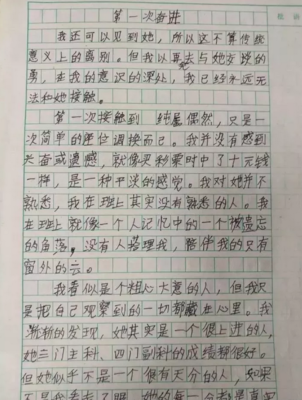 第一次奋进
我还可以见到她，所以这不算传统
意义上的离别。但我以再去与她交谈的
勇，在我的意识的深处，我已经永远无
法和她接触。
第一次接触到 纯属偶然，只是一
次简单的座位调换而已。我并没有感到
兴奋或遗憾，就像买彩票时中了十元钱
一样，是一种平淡的感觉。我对她并不
熟悉，我在班上其实没有熟悉的人。我
在班上就像一个人记忆中的一个被遗忘
的角落，没有人搭理我，陪伴我的只有
窗外的云。
我看似是个粗心大意的人，但我只
是把自己观察到的一切都藏在心里。我
渐渐的发现，她其实是一个很上进的人，
她三门主科、四门副科的成绩都很好。
但她似乎不是一个很有天分的人，如果